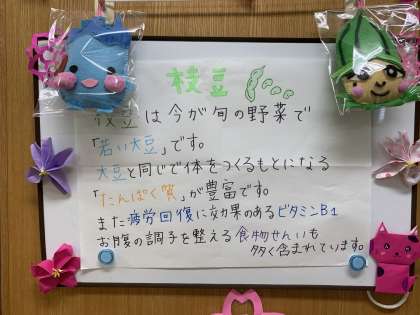 枝豆
枝豆は今が旬の野菜で
「若い大豆」です。
大豆と同じで体をつくるもとになる
「たんぱく質」が豊富です。
また疲労回復に効果のあるビタミンB1
お腹の調子を整える食物せんいも
多く含まれています。